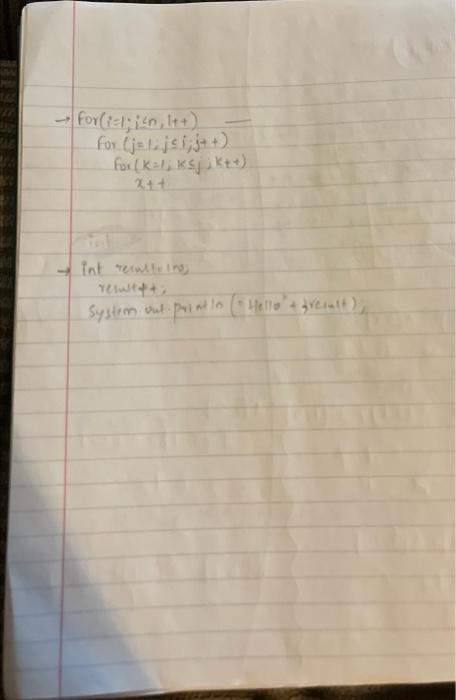 → for(i=1; i≤n, i++)
for (j=1; j≤i; j++)
for(k=1; k≤j; k++)
x++
int
→ int result=100;
result++;
System.out.println("Hello"+ result);